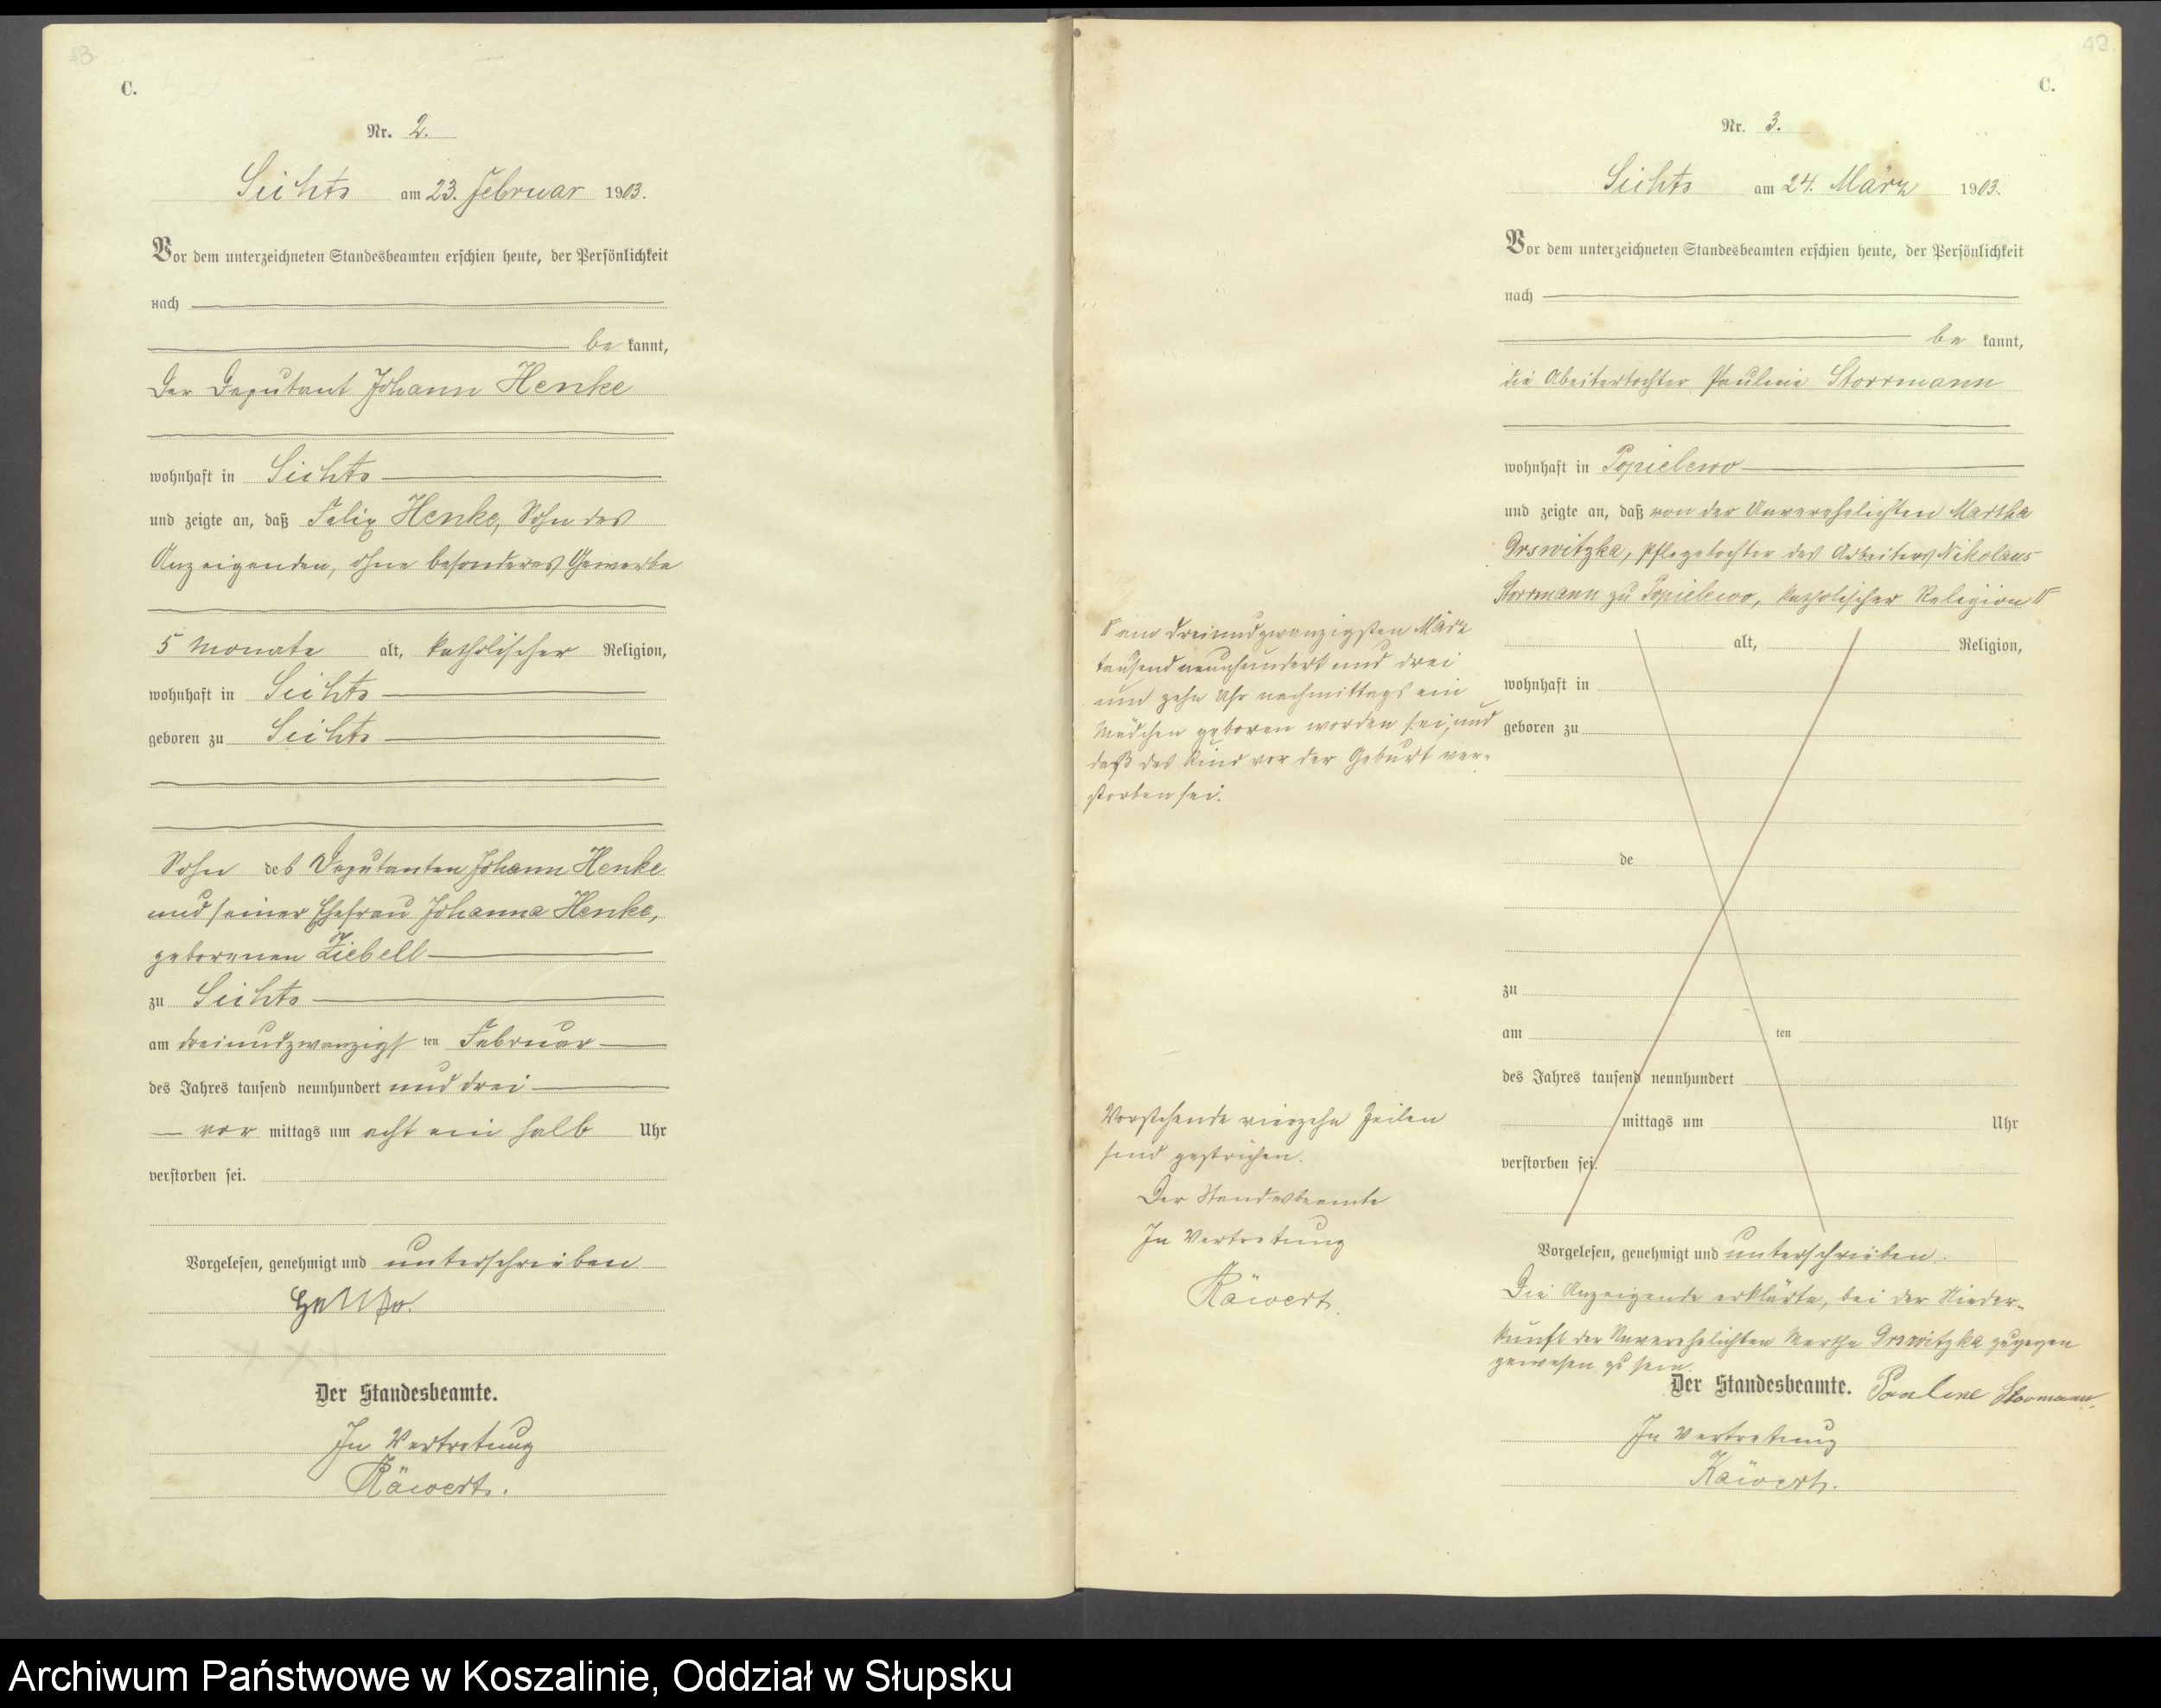 C.
Nr. 2.
Sichts am 23. Februar 1903.
Vor dem unterzeichneten Standesbeamten erschien heute, der Persönlichkeit
nach
be kannt,
Der Deputant Johann Henke
wohnhaft in Sichts
und zeigte an, daß Felix Henke, Sohn des
Anzeigenden, ohne besonderes Gewerbe
5 Monate alt, katholischer Religion,
wohnhaft in Sichts
geboren zu Sichts
Sohn des Deputanten Johann Henke
und seiner Ehefrau Johanna Henke,
geborenen Ziebell
zu Sichts
am dreiundzwanzigsten Februar
des Jahres tausend neunhundert und drei
vor mittags um acht ein halb Uhr
verstorben sei.
Vorgelesen, genehmigt und unterschrieben
Henke.
Der Standesbeamte.
In Vertretung
Räwert.
48.
C.
Nr. 3.
Sichts am 24. März 1903.
Vor dem unterzeichneten Standesbeamten erschien heute, der Persönlichkeit
nach
be kannt,
die Abeitertochter Pauline Storrmann
wohnhaft in Popielewo
und zeigte an, daß von der Unverehelichten Martha
Orswitzka, Pflegetochter des Arbeiters Nikolaus
Storrmann zu Popielewo, katholischer Religion
am dreiundzwanzigsten März
tausend neunhundert und drei
um zehn Uhr nachmittags ein
Mädchen geboren worden sei, und
daß das Kind vor der Geburt ver-
storben sei.
alt, Religion,
wohnhaft in
geboren zu
de
zu
am ten
des Jahres tausend neunhundert
mittags um Uhr
verstorben sei.
Vorstehende vierzehn Zeilen
sind gestrichen.
Der Standesbeamte
In Vertretung
Räwert.
Vorgelesen, genehmigt und unterschrieben.
Die Anzeigende erklärte, bei der Nieder-
kunft der Unverehelichten Martha Orswitzka zugegen
gewesen zu sein.
Der Standesbeamte. Pauline Stormann.
In Vertretung
Räwert.
Archiwum Państwowe w Koszalinie, Oddział w Słupsku